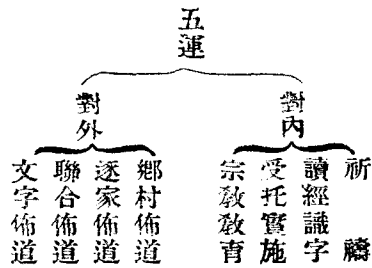 五運
對內
祈禱
讀經識字
受托實施
宗敎敎育
對外
鄉村佈道
逐家佈道
聯合佈道
文字佈道